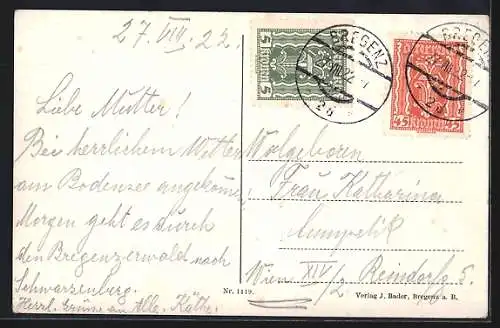 27. VIII. 22.
Liebe Mutter!
Bei herrlichem Wetter
am Bodensee angekommen,
Morgen geht es durch
den Bregenzerwald nach
Schwarzenberg.
Herzl. Grüsse an Alle, Käthe.
5 KRONEN 5
BREGENZ
45 KRONEN 45
BREGENZ
Wolgeboren
Frau Katharina
Wien XIV/2 Reindorfg. 5.
Nr. 1119.
Verlag J. Bader, Bregenz a. B.